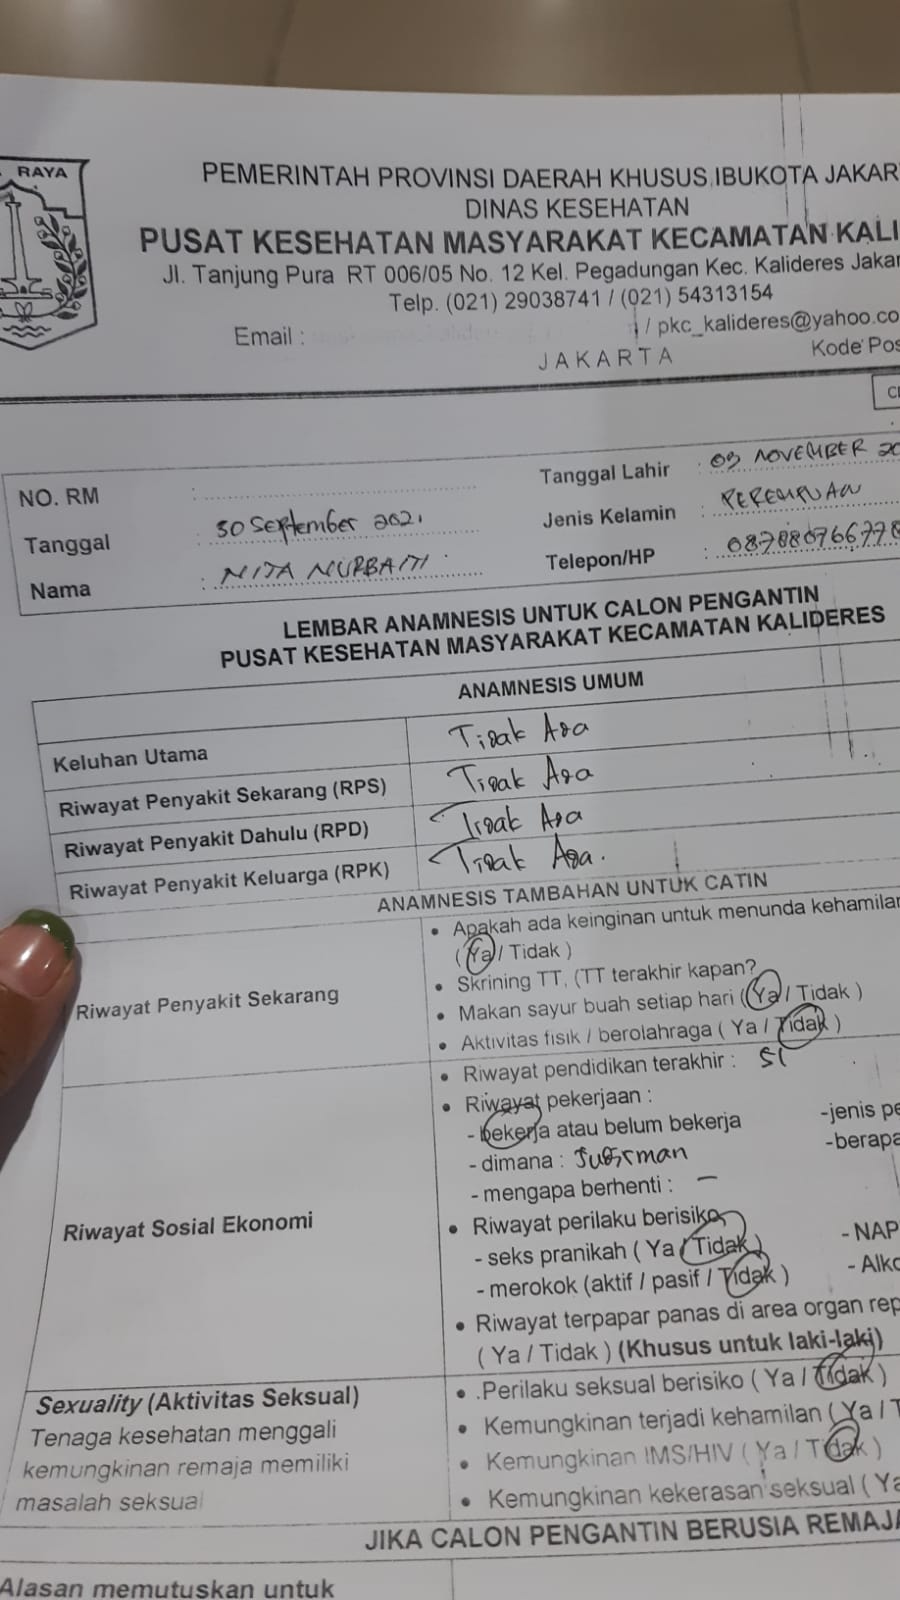 RAYA
PEMERINTAH PROVINSI DAERAH KHUSUS IBUKOTA JAKAR
DINAS KESEHATAN
PUSAT KESEHATAN MASYARAKAT KECAMATAN KALI
Jl. Tanjung Pura RT 006/05 No. 12 Kel. Pegadungan Kec. Kalideres Jakar
Telp. (021) 29038741 / (021) 54313154
Email : / pkc_kalideres@yahoo.co
JAKARTA Kode Pos
NO. RM : Tanggal Lahir : 09 NOVEMBER 20
Tanggal : 30 September 2021 Jenis Kelamin : PEREMPUAN
Nama : NITA NURBAITI Telepon/HP : 087880766778
LEMBAR ANAMNESIS UNTUK CALON PENGANTIN
PUSAT KESEHATAN MASYARAKAT KECAMATAN KALIDERES
ANAMNESIS UMUM
Keluhan Utama Tidak Ada
Riwayat Penyakit Sekarang (RPS) Tidak Ada
Riwayat Penyakit Dahulu (RPD) Tidak Ada
Riwayat Penyakit Keluarga (RPK) Tidak Ada.
ANAMNESIS TAMBAHAN UNTUK CATIN
Riwayat Penyakit Sekarang
• Apakah ada keinginan untuk menunda kehamilan
( Ya / Tidak )
• Skrining TT, (TT terakhir kapan?
• Makan sayur buah setiap hari ( Ya / Tidak )
• Aktivitas fisik / berolahraga ( Ya / Tidak )
Riwayat Sosial Ekonomi
• Riwayat pendidikan terakhir : S1
• Riwayat pekerjaan :
- bekerja atau belum bekerja -jenis pe
- dimana : Sudirman -berapa
- mengapa berhenti : –
• Riwayat perilaku berisiko
- seks pranikah ( Ya / Tidak ) - NAP
- merokok (aktif / pasif / Tidak ) - Alko
• Riwayat terpapar panas di area organ rep
( Ya / Tidak ) (Khusus untuk laki-laki)
Sexuality (Aktivitas Seksual)
Tenaga kesehatan menggali
kemungkinan remaja memiliki
masalah seksual
• .Perilaku seksual berisiko ( Ya / Tidak )
• Kemungkinan terjadi kehamilan ( Ya / T
• Kemungkinan IMS/HIV ( Ya / Tidak )
• Kemungkinan kekerasan seksual ( Ya
JIKA CALON PENGANTIN BERUSIA REMAJA
Alasan memutuskan untuk